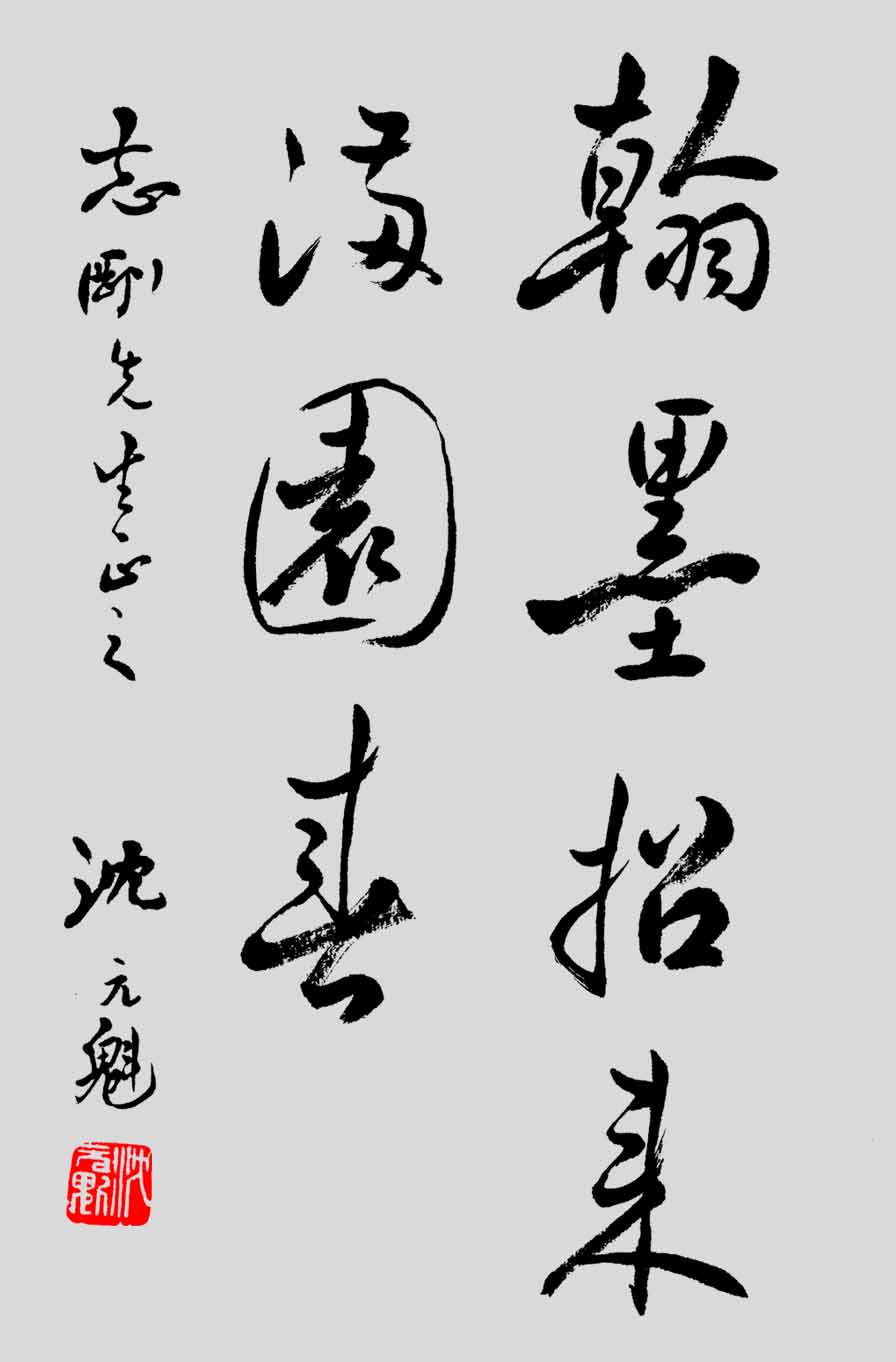 翰墨招来
满園春
志剛先生正之
沈元魁
沈元魁